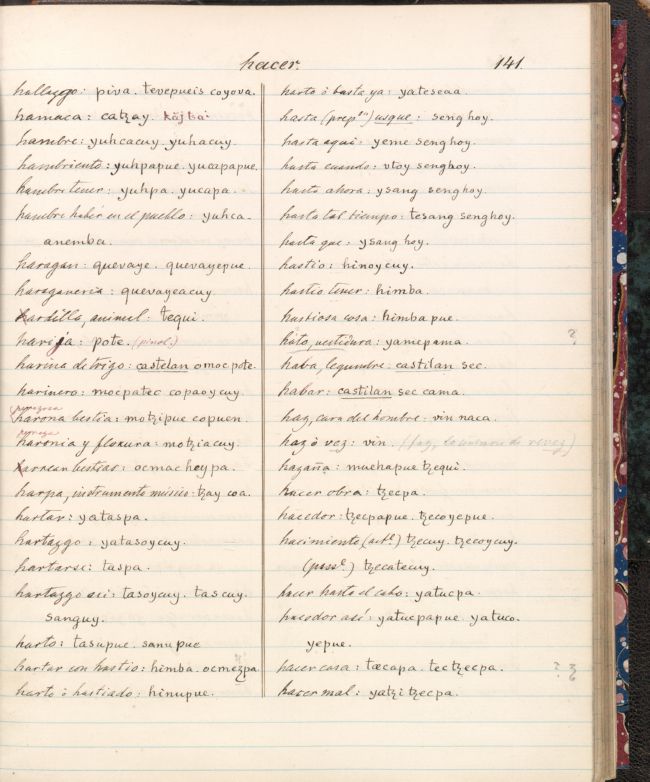 hacer. 141.
hallazgo: piva. tevepueis coyova.
hamaca: catzay. kājtai
hambre: yuhcacuy. yuhacuy.
hambriento: yuhpapue. yucapapue.
hambre tener: yuhpa. yucapa.
hambre haber en el pueblo: yuhca-
anemba.
haragan: quevaye. quevayepue.
haraganeria: quevayeacuy.
hardilla, animal: tequi.
harija: pote. (pinol.)
harina de trigo: castelan omoc pote.
harinero: mocpatec copaoycuy.
perezosa
harona bestia: motzipue copuen.
pereza
haronia y floxura: motziacuy.
harrear bestias: ocmac hoypa.
harpa, instrumento músico: tzay coa.
hartar: yataspa.
hartazgo: yatasoycuy.
hartarse: taspa.
hartazgo asi: tasoycuy. tascuy.
sanguy.
harto: tasupue. sanupue
hartar con hastio: himba. ocmezpa
harto ó hastiado: hinupue.
harto ó basta ya: yateseaa.
hasta (prepon) usque: senghoy.
hasta aqui: yeme senghoy.
hasta cuando: vtoy senghoy.
hasta ahora: ysang senghoy.
hasta tal tiempo: tesang senghoy.
hasta que: ysang hoy.
hastio: hinoycuy.
hastio tener: himba.
hastiosa cosa: himba pue.
hato, vestidura: yamepama. ?
haba, legumbre: castilan sec.
habar: castilan sec cama.
haz, cara del hombre: vin naca.
haz ó vez: vin. (faz, lo inverso de revez)
hazaña: muehapue tzequi.
hacer obra: tzecpa.
hacedor: tzecpapue. tzecoyepue.
hacimiento (acte.) tzecuy. tzecoycuy.
(passe.) tzecatecuy.
hacer hasta el cabo: yatucpa.
hacedor así: yatucpapue. yatuco-
yepue.
hacer casa: tæcapa. tectzecpa. ?
hacer mal: yatzi tzecpa.